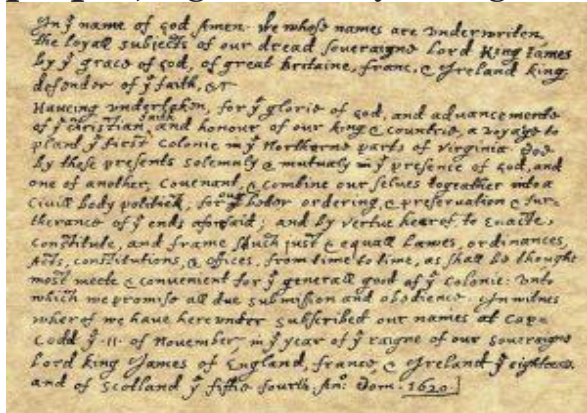 In yͤ name of god Amen. We whose names are underwriten,
the loyall subjects of our dread soveraigne Lord King James
by yͤ grace of god, of great Britaine, franc, & Ireland king,
defender of yͤ faith, &c
Haveing undertaken, for yͤ glorie of god, and advancemente
of yͤ christian faith and honour of our king & countrie, a voyage to
plant yͤ first colonie in yͤ Northerne parts of Virginia doe
by these presents solemnly & mutualy in yͤ presence of god, and
one of another, covenant, & combine our selves togeather into a
civill body politick, for yͤ better ordering, & preservation & fur=
therance of yͤ ends aforesaid; and by vertue hearof to enacte,
constitute, and frame shuch just & equall lawes, ordinances,
Acts, constitutions, & offices, from time to time, as shall be thought
most meete & convenient for yͤ generall good of yͤ colonie: unto
which we promise all due submission and obedience. In witnes
wherof we have hereunder subscribed our names at Cap=
Codd yͤ .11. of November, in yͤ year of yͤ raigne of our soveraigne
Lord king James of England, france, & Ireland yͤ eighteene,
and of Scotland yͤ fiftie fourth. Anº. Dom. 1620.